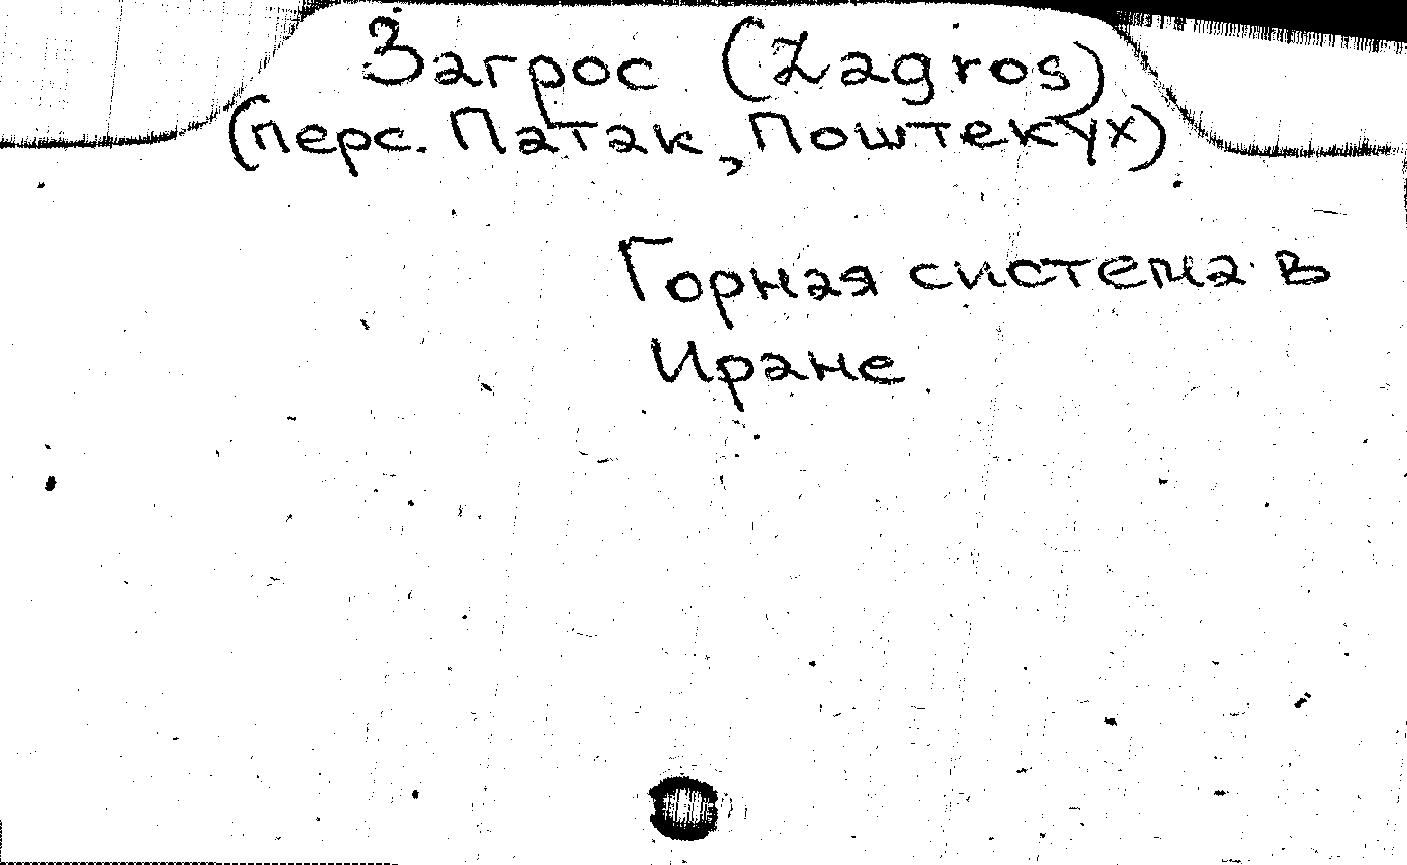 Загрос (Zagros)
(перс. Патак, Поштекух)
Горная система в
Иране